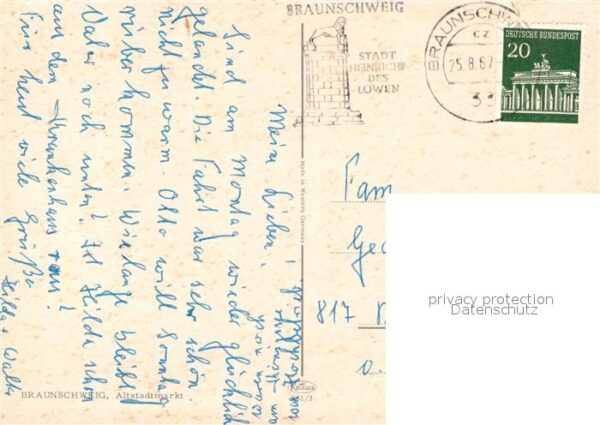 BRAUNSCHWEIG
STADT
HEINRICHS
DES
LÖWEN
BRAUNSCHWEIG
cz
25.8.67
33
DEUTSCHE BUNDESPOST
20
Meine Lieben!
Sind am Montag wieder glücklich
gelandet. Die Fahrt war sehr schön
nicht zu warm. Otto will Sonntag
rüber kommen. Wie lange bleibt
Vater noch unten? Ist Hilde schon
aus dem Krankenhaus raus?
Für heut viele Grüße
Hilda + Walter
Made in Western Germany
Fam
Ge
817
BRAUNSCHWEIG, Altstadtmarkt
privacy protection
Datenschutz